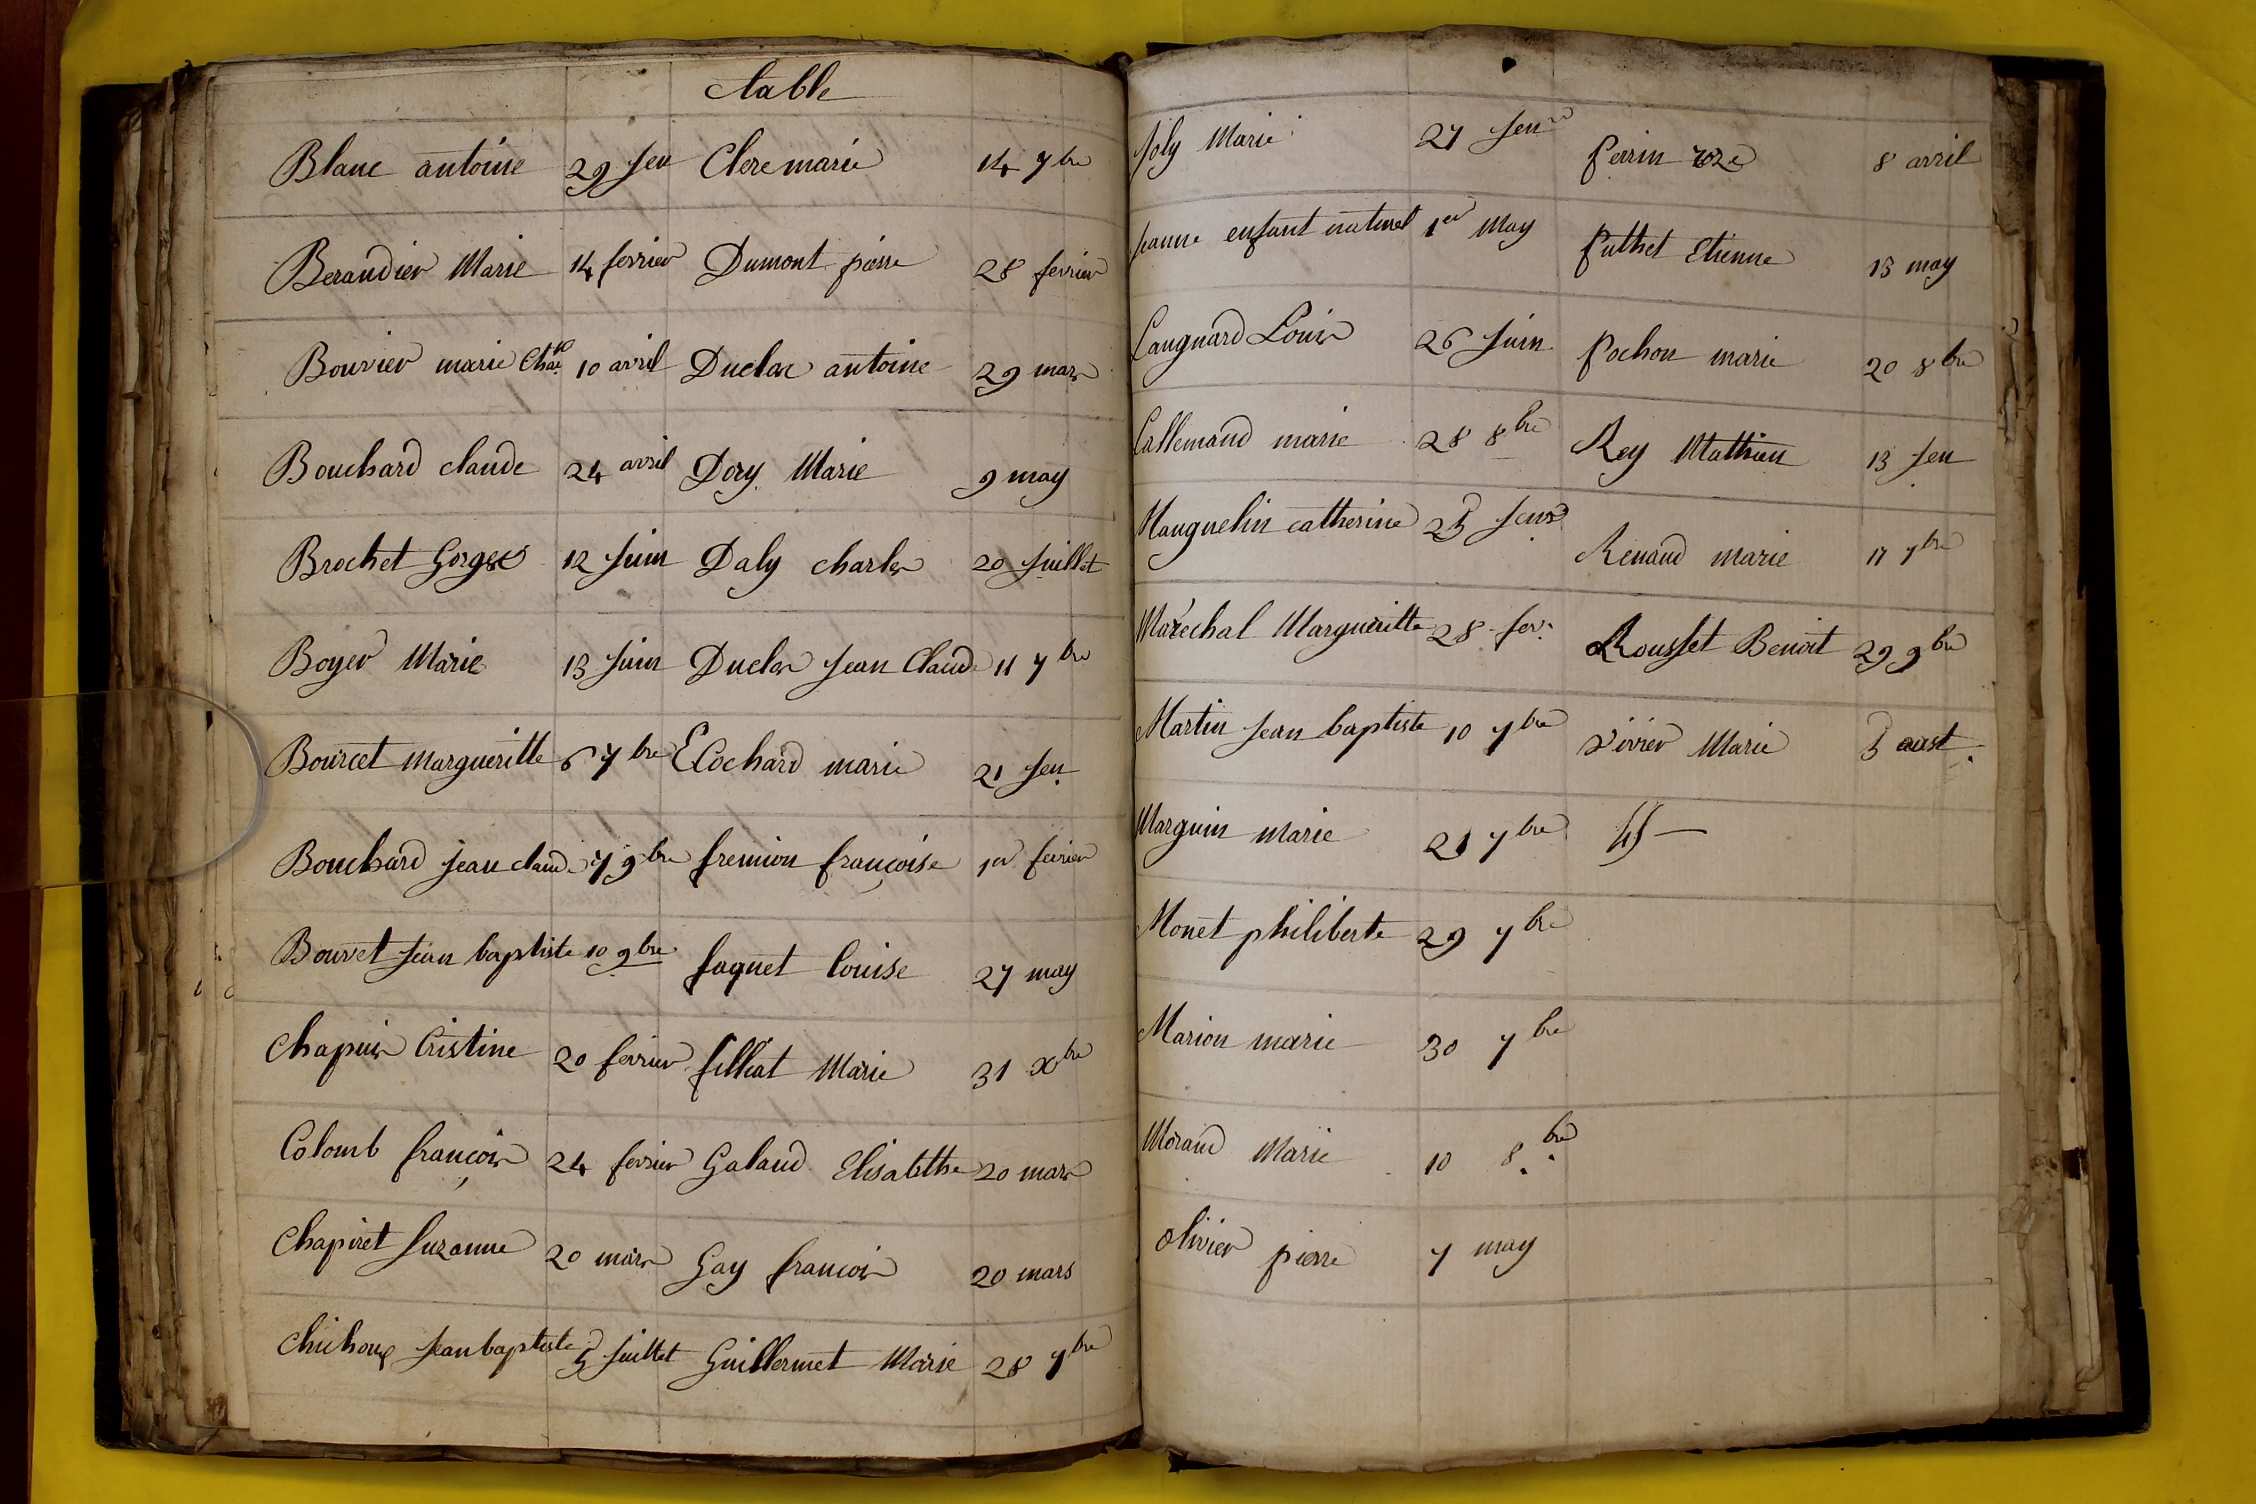 table
Blanc antoine 29 Jen Clere marie 14 7bre
Beraudier Marie 14 fevrier Dumont pierre 28 fevrier
Bouvier marie Chae 10 avril Duclos antoine 29 mars
Bouchard claude 24 avril Dory Marie 9 may
Brochet Gorges 12 Juin Daly charles 20 Juillet
Boyer Marie 13 Juin Duclos Jean Claude 11 7bre
Bourcet Margueritte 6 7bre Ecochard marie 21 Jen
Bouchard Jean claude 7 9bre fremion françoise 1er fevrier
Bouvet Jean baptiste 10 9bre faquet Louise 27 may
Chapuis Cristine 20 fevrier filliat Marie 31 Xbre
Colomb françois 24 fevrier Galand Elisabethe 20 mars
Chapiret Suzanne 20 mars Gay francois 20 mars
Chichoux Jean baptiste 5 Juillet Guillermet Marie 28 7bre
Joly Marie 27 Jenre Perrin roze 8 avril
Jeanne enfant naturel 1er May Puthet Etienne 13 may
Laugnard Louis 26 Juin Pochon marie 20 8bre
Lallemand marie 28 8bre Rey Mathieu 13 Jen
Manguelin catherine 25 Jenre Renaud marie 11 7bre
Maréchal Margueritte 28 fev. Rousset Benoit 29 9bre
Martin Jean baptiste 10 7bre Vivier Marie 5 aust
Marguin Marie 21 7bre
Monet philiberte 29 7bre
Marion marie 30 7bre
Morand Marie 10 8bre
Olivier pierre 7 may